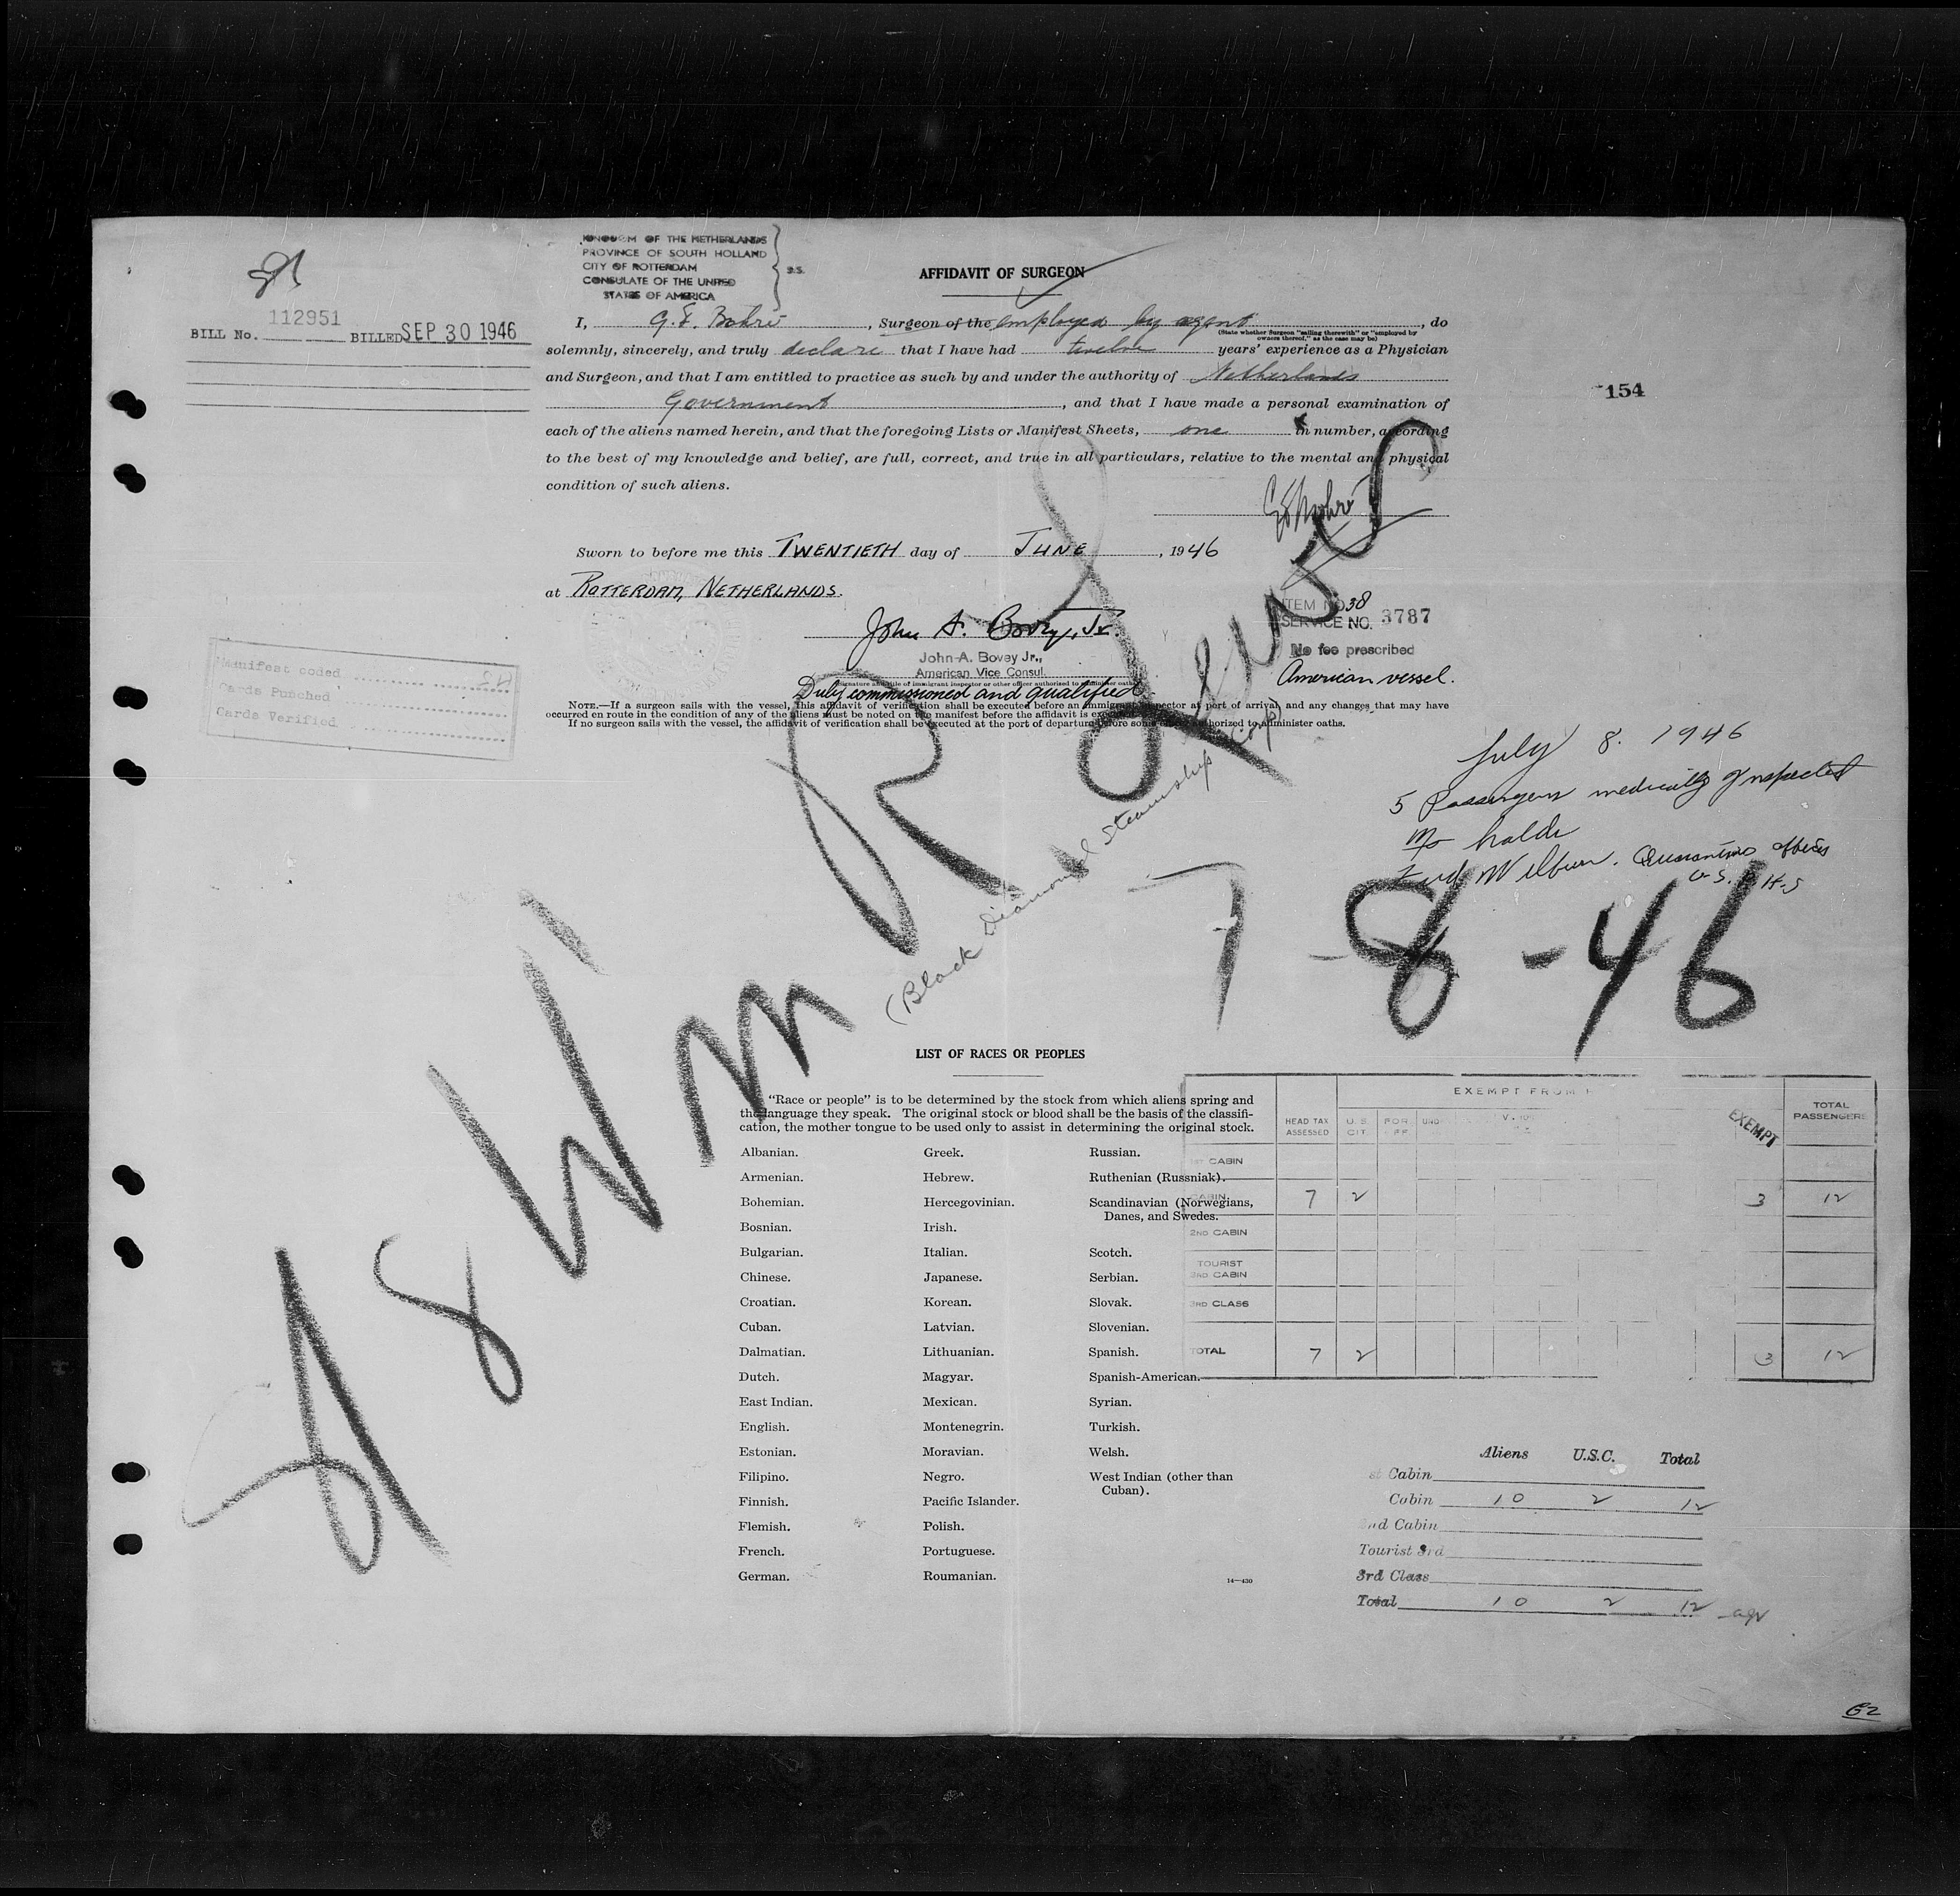 KINGDOM OF THE NETHERLANDS
PROVINCE OF SOUTH HOLLAND
CITY OF ROTTERDAM
CONSULATE OF THE UNITED
STATES OF AMERICA
S.S.
AFFIDAVIT OF SURGEON
BILL No. 112951 BILLED SEP 30 1946
I, G. E. Bohré, Surgeon of the employed by agent, do
(State whether Surgeon "sailing therewith" or "employed by
owners thereof," as the case may be)
solemnly, sincerely, and truly declare that I have had twelve years' experience as a Physician
and Surgeon, and that I am entitled to practice as such by and under the authority of Netherlands
Government, and that I have made a personal examination of
each of the aliens named herein, and that the foregoing Lists or Manifest Sheets, one in number, according
to the best of my knowledge and belief, are full, correct, and true in all particulars, relative to the mental and physical
condition of such aliens.
154
Sworn to before me this TWENTIETH day of JUNE, 1946
at ROTTERDAM, NETHERLANDS.
John A. Bovey, Jr.
John A. Bovey Jr.,
American Vice Consul.
Duly commissioned and qualified
ITEM NO. 38
SERVICE NO. 3787
No fee prescribed
American vessel.
Manifest coded
Cards Punched
Cards Verified
NOTE.—If a surgeon sails with the vessel, this affidavit of verification shall be executed before an immigrant inspector at port of arrival, and any changes that may have
occurred en route in the condition of any of the aliens must be noted on the manifest before the affidavit is executed.
If no surgeon sails with the vessel, the affidavit of verification shall be executed at the port of departure before some officer authorized to administer oaths.
July 8. 1946
5 Passengers medically Inspected
No holds
Wilburn. Quarantine Officer
U.S.P.H.S
(Black Diamond Steamship Corp)
7-8-46
LIST OF RACES OR PEOPLES
"Race or people" is to be determined by the stock from which aliens spring and
the language they speak. The original stock or blood shall be the basis of the classifi-
cation, the mother tongue to be used only to assist in determining the original stock.
Albanian. Greek. Russian.
Armenian. Hebrew. Ruthenian (Russniak).
Bohemian. Hercegovinian. Scandinavian (Norwegians,
Danes, and Swedes.
Bosnian. Irish.
Bulgarian. Italian. Scotch.
Chinese. Japanese. Serbian.
Croatian. Korean. Slovak.
Cuban. Latvian. Slovenian.
Dalmatian. Lithuanian. Spanish.
Dutch. Magyar. Spanish-American.
East Indian. Mexican. Syrian.
English. Montenegrin. Turkish.
Estonian. Moravian. Welsh.
Filipino. Negro. West Indian (other than
Cuban).
Finnish. Pacific Islander.
Flemish. Polish.
French. Portuguese.
German. Roumanian.
14—430
EXEMPT FROM
HEAD TAX
ASSESSED
U.S.
CIT.
FOR
EXEMPT
TOTAL
PASSENGERS
1ST CABIN
CABIN 7 2 3 12
2ND CABIN
TOURIST
3RD CABIN
3RD CLASS
TOTAL 7 2 3 12
Aliens U.S.C. Total
st Cabin
Cabin 10 2 12
2nd Cabin
Tourist 3rd
3rd Class
Total 10 2 12
62